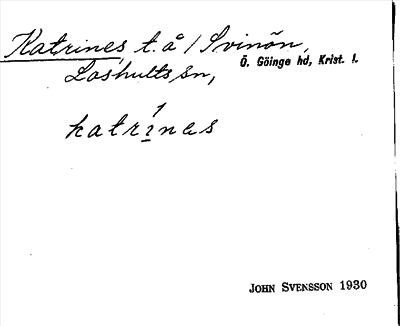 Katrines, t. å / Svinön,
Loshults sn, Ö. Göinge hd, Krist. l.
katrìnes
John Svensson 1930